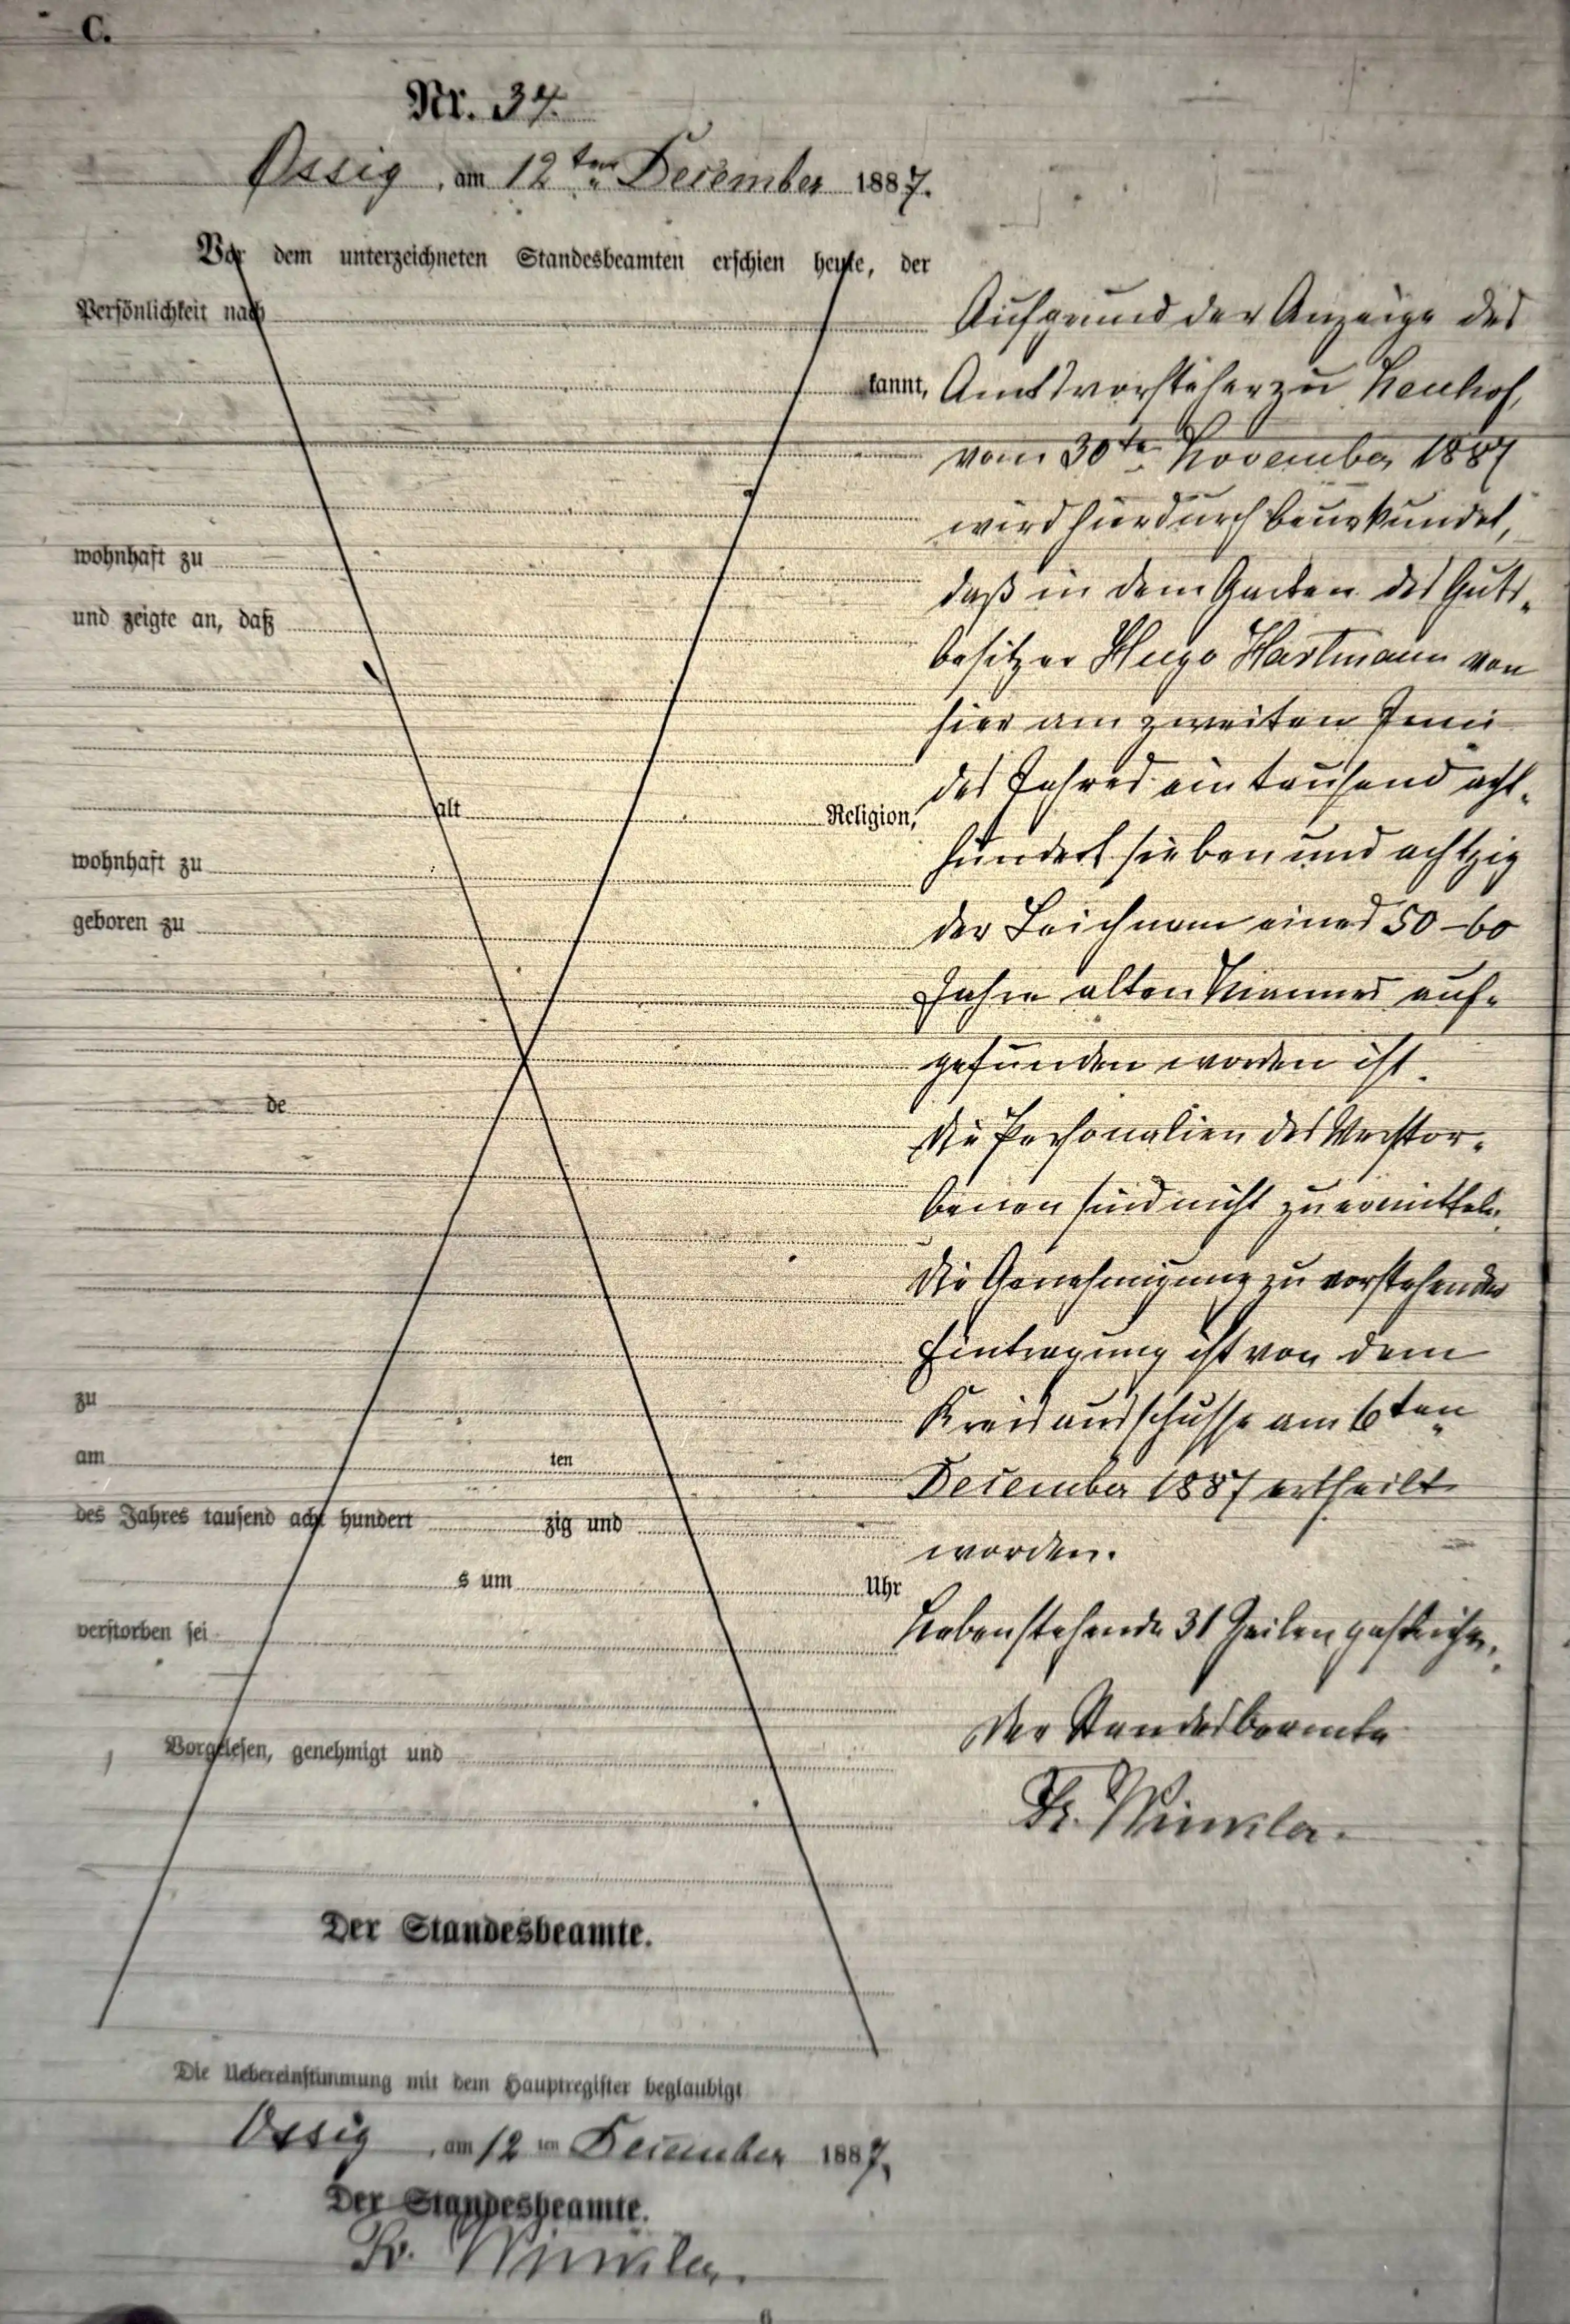 C.
Nr. 34.
Ossig, am 12ten December 1887.
Vor dem unterzeichneten Standesbeamten erschien heute, der
Persönlichkeit nach
kannt,
wohnhaft zu
und zeigte an, daß
alt Religion,
wohnhaft zu
geboren zu
de
zu
am ten
des Jahres tausend acht hundert zig und
s um Uhr
verstorben sei
Vorgelesen, genehmigt und
Der Standesbeamte.
Aufgrund der Anzeige des
Amtsvorsteher zu Neuhof,
vom 30ten November 1887
wird hierdurch beurkundet,
daß in dem Garten des Guts-
besitzer Hugo Hartmann von
hier am zweiten Juni
des Jahres ein tausend acht-
hundert sieben und achtzig
der Leichnam eines 50-60
Jahre alten Mannes auf-
gefunden worden ist.
Die Personalien des Verstor-
benen sind nicht zu ermitteln.
Die Genehmigung zu vorstehender
Eintragung ist von dem
Kreisausschusse am 6ten
December 1887 ertheilt
worden.
Nebenstehende 31 Zeilen gestrichen.
Der Standesbeamte
Fr. Winkler.
Die Uebereinstimmung mit dem Hauptregister beglaubigt
Ossig, am 12 ten December 1887.
Der Standesbeamte.
Fr. Winkler.
6